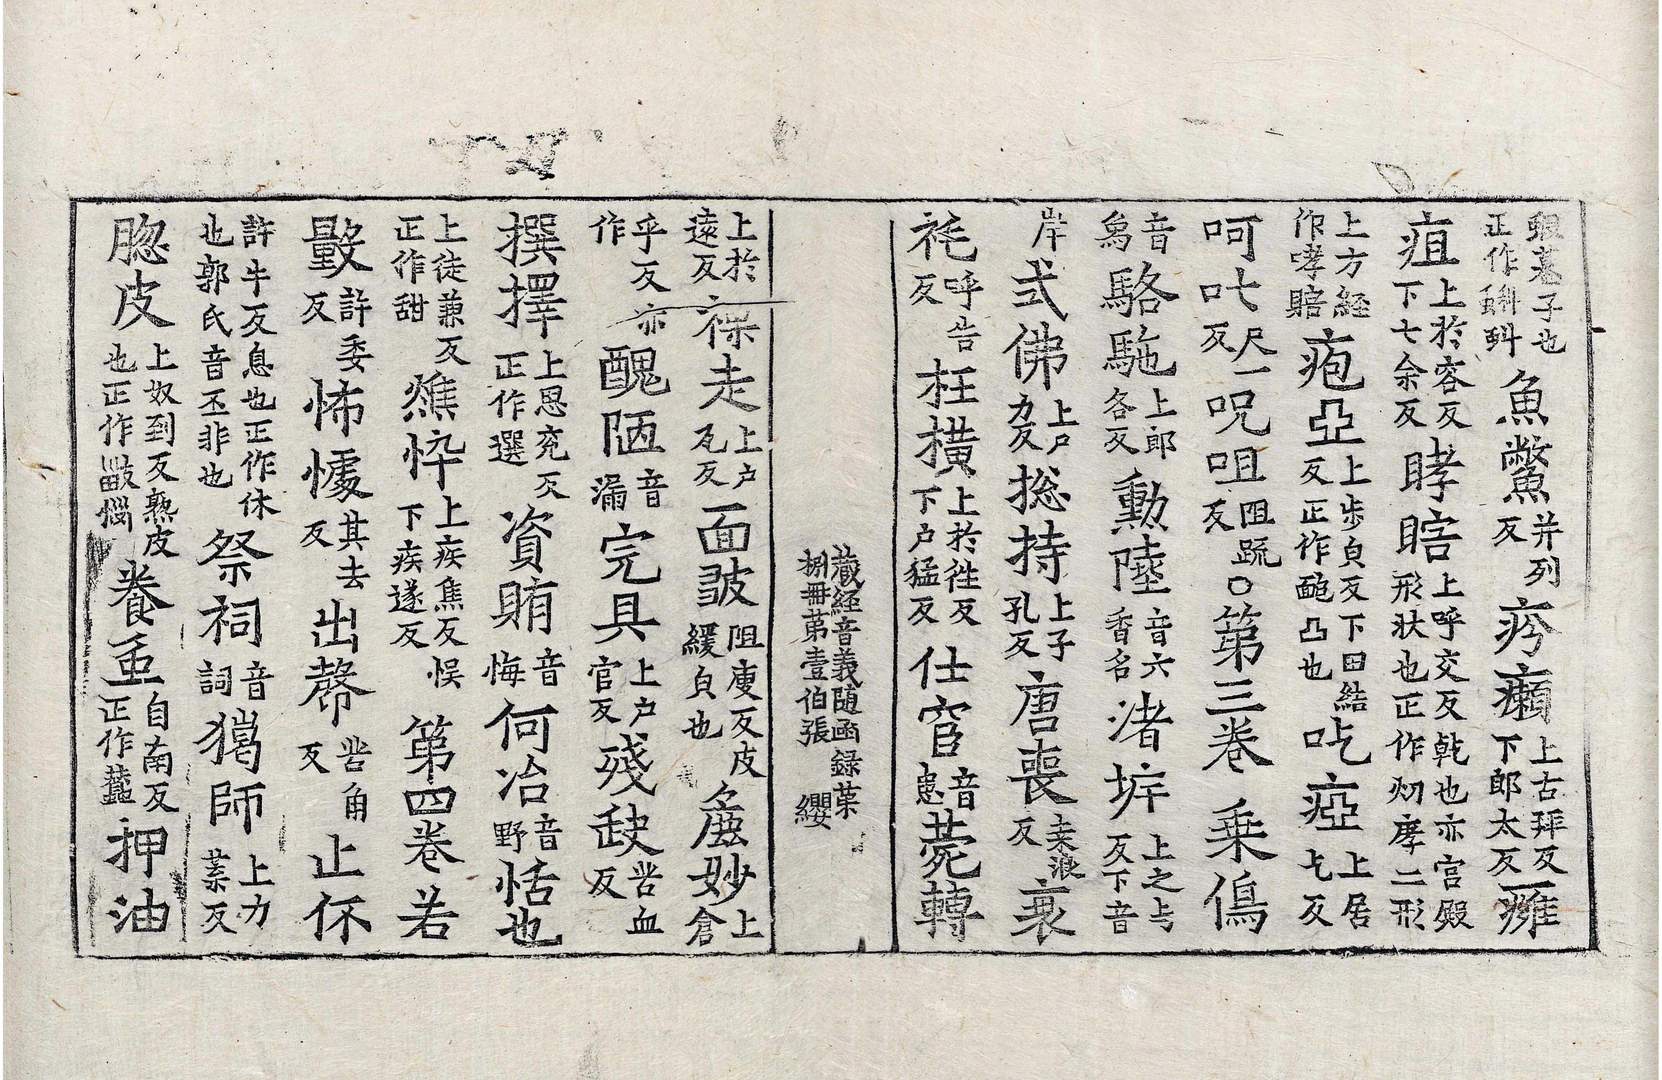 蝦蟇子也正作蝌蚪魚鼈并列反疥癩上古拜反下郎太反癰
疽上於容反下七余反哮瞎上呼交反乾也亦宫殿形狀也正作㓛庠二形
上方経作哮䁅疱亞上步皃反下田結反正作皰凸也吃瘂上居乞反
呵叱尺一反呪咀阻䟽反○第三卷乗傿
音爲駱駞上郎各反勳陸音六香名渚垿上之与反下音
岸弍佛上户力反捴持上子孔反唐喪桒浪反衰
秏呼告反枉横上於往反下户猛反仕宦音患薨轉
藏経音義随函録苐捌冊苐壹伯張纓
上於遠反裸走上户瓦反面皺阻瘦反皮緩皃也麁妙上倉
乎反亦作醜陋音漏完具上户官反殘缺苦血反
撰擇上思兖反正作選資賄音悔何冶音野恬也
上徒兼反正作甜憔悴上疾焦反下疾遂反悮第四卷若
毀許委反怖懅其去反出㱿苦角反止休
許牛反息也正作休也郭氏音丕非也祭祠音詞獦師上力葉反
𦛁皮上奴到反熟皮也正作䐉惱養蚕自南反正作蠶押油